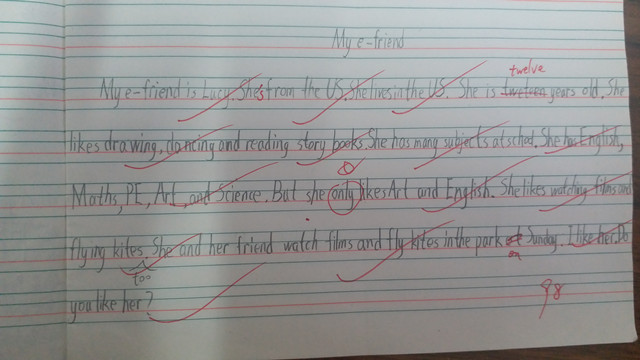 My e-friend
twelve
My e-friend is Lucy. She's from the US. She lives in the US. She is tweteen years old. She
likes drawing, dancing and reading story books. She has many subjects at school. She has English,
Maths, PE, Art, and Science. But she only likes Art and English. She likes watching films and
flying kites. She and her friend watch films and fly kites in the park Sunday. I like her. Do
too
on
you like her?
98